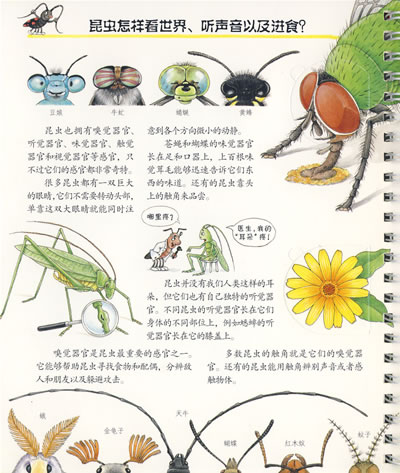 昆虫怎样看世界、听声音以及进食?
豆娘
牛虻
蜻蜓
黄蜂
昆虫也拥有嗅觉器官、
听觉器官、味觉器官、触觉
器官和视觉器官等感官,只
不过它们的感官都非常奇特。
很多昆虫都有一双巨大
的眼睛,它们不需要转动头部,
单靠这双大眼睛就能同时注
意到各个方向微小的动静。
苍蝇和蝴蝶的味觉器官
长在足和口器上,上百根味
觉茸毛能够迅速告诉它们东
西的味道。还有的昆虫靠头
上的触角来品尝。
哪里疼?
医生,我的
“耳朵”疼!
昆虫并没有我们人类这样的耳
朵,但它们也有自己独特的听觉器
官。不同昆虫的听觉器官长在它们
身体的不同部位上,例如蟋蟀的听
觉器官长在它的膝盖上。
嗅觉器官是昆虫最重要的感官之一。
它能够帮助昆虫寻找食物和配偶,分辨敌
人和朋友以及躲避攻击。
多数昆虫的触角就是它们的嗅觉
器官。还有的昆虫能用触角辨别声音或者感
触物体。
蛾
金龟子
天牛
蝴蝶
红木蚁
蚊子